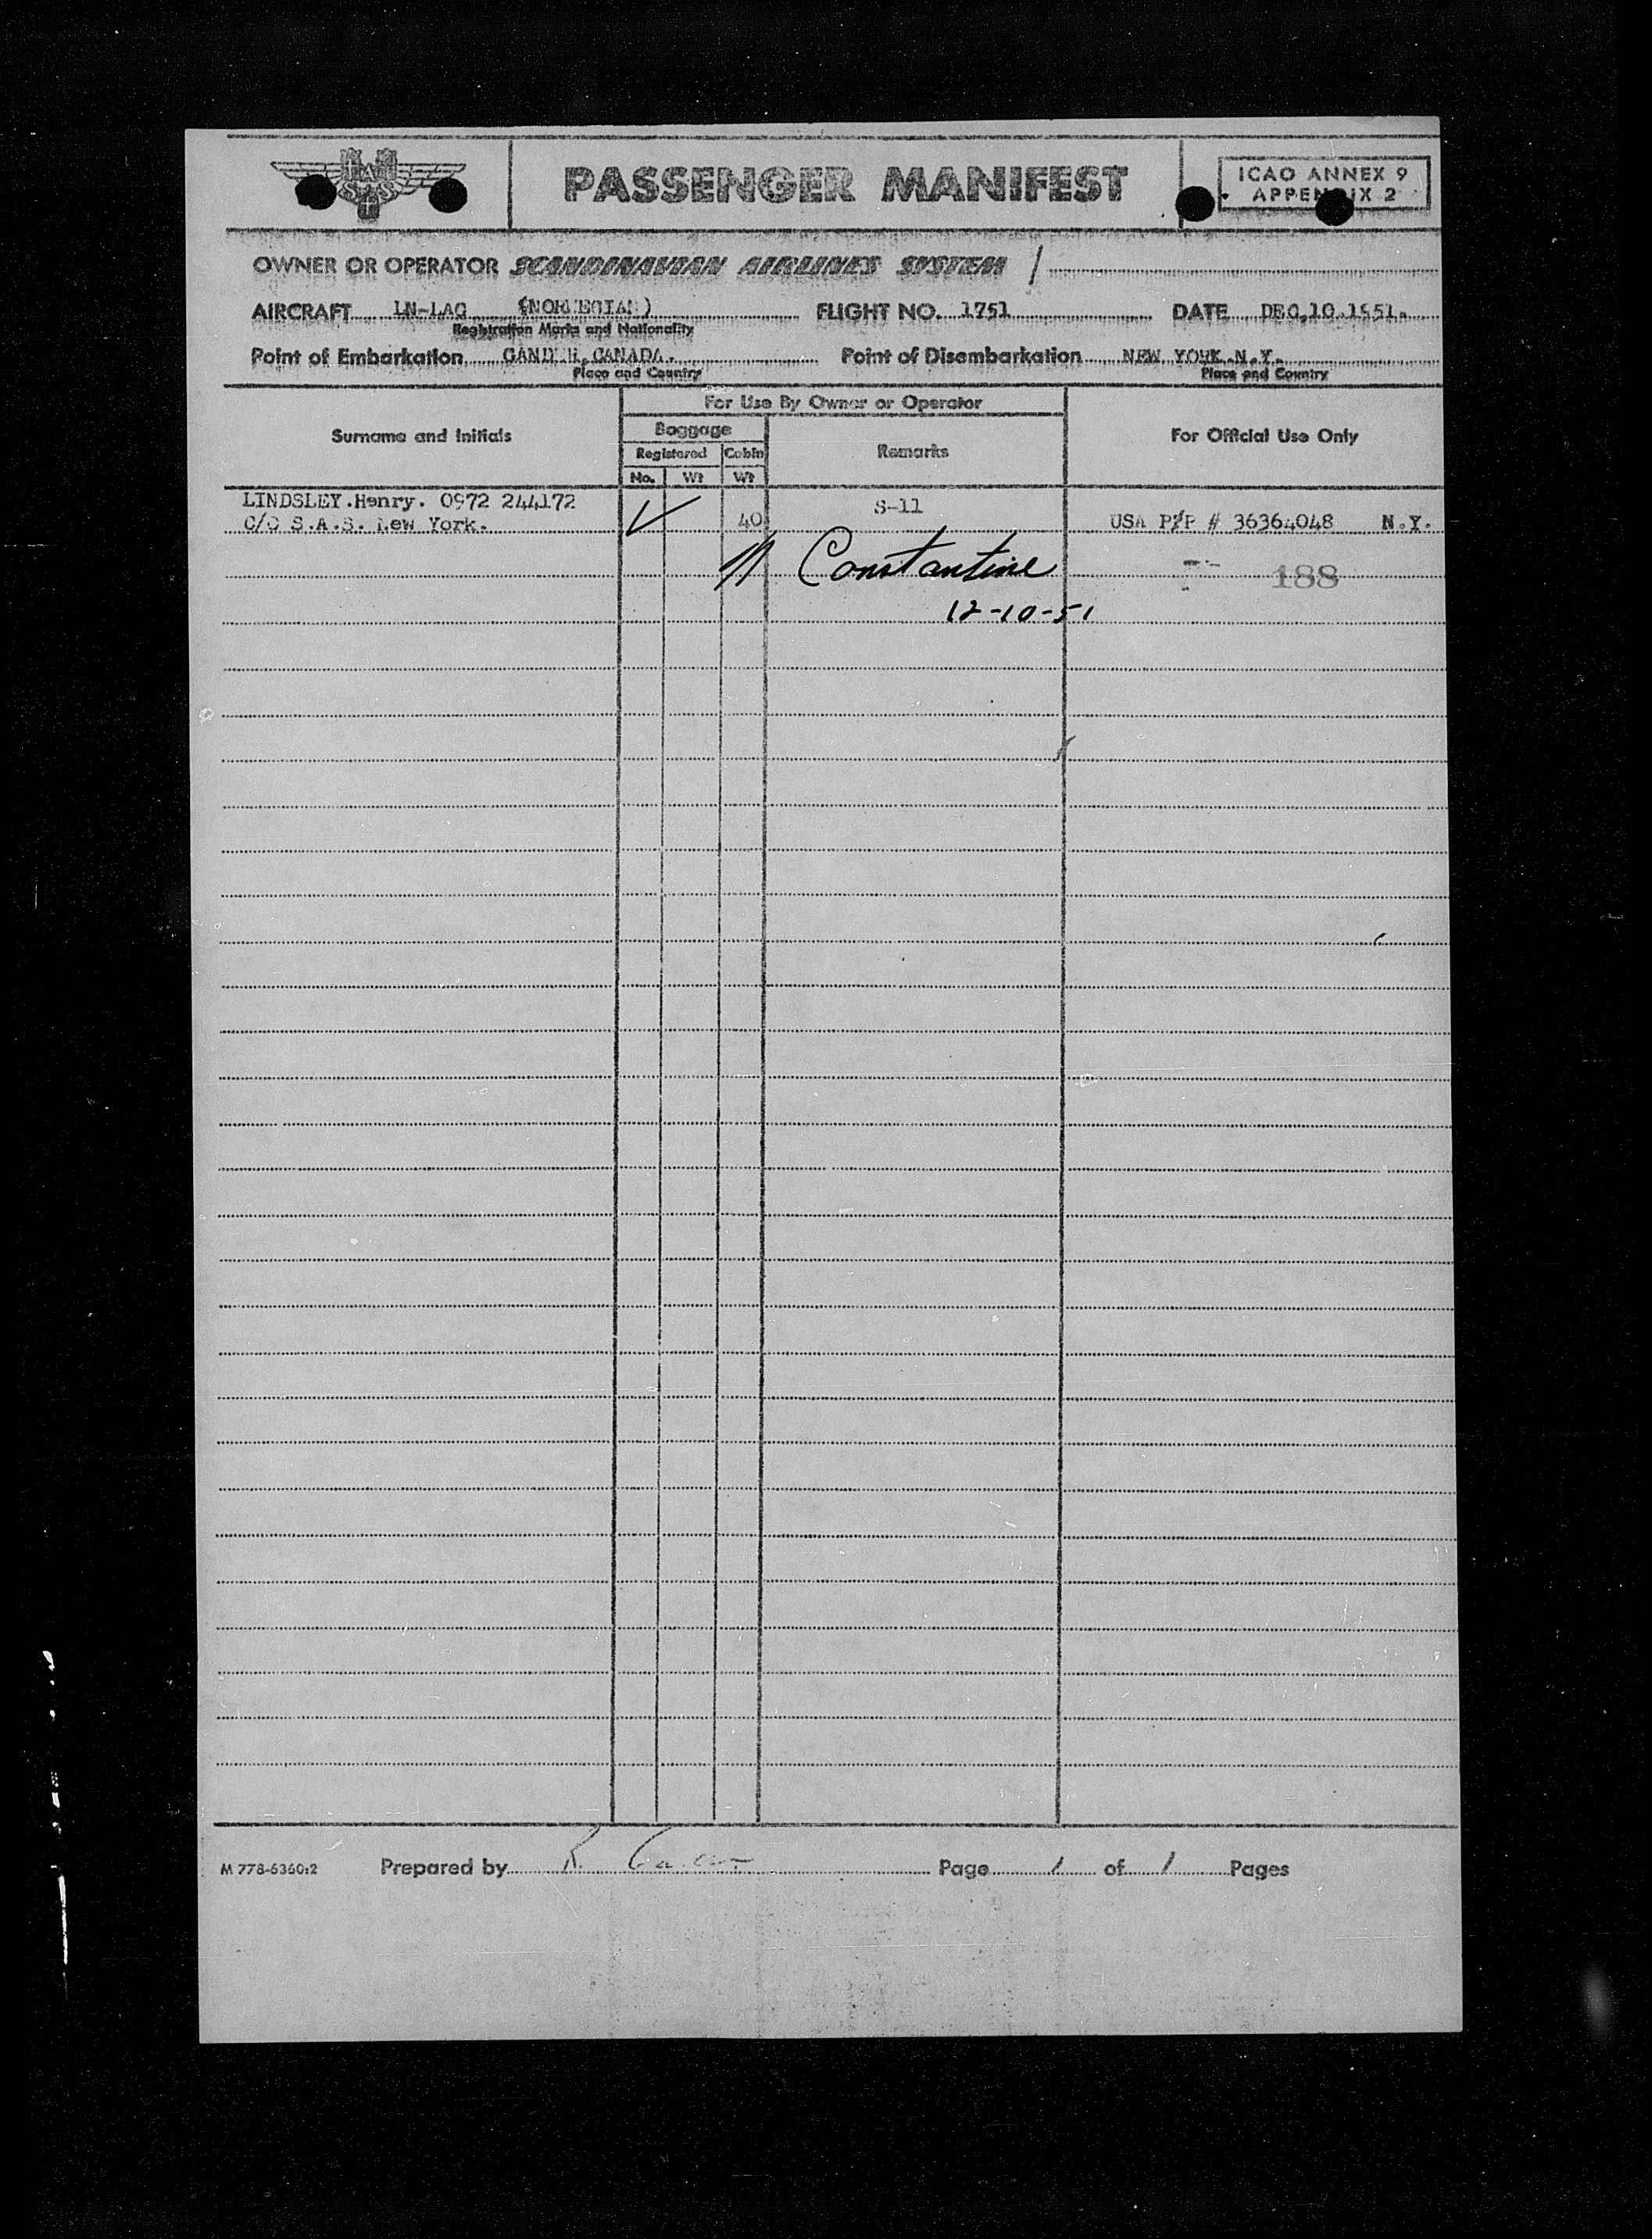 S A S
PASSENGER MANIFEST
ICAO ANNEX 9
APPENDIX 2
OWNER OR OPERATOR SCANDINAVIAN AIRLINES SYSTEM /
AIRCRAFT LN-LAG (NORWEGIAN) FLIGHT NO. 1751 DATE DEC,10.1951.
Registration Marks and Nationality
Point of Embarkation GANDER,CANADA. Point of Disembarkation NEW YORK.N.Y.
Place and Country Place and Country
For Use By Owner or Operator
Surname and Initials Baggage Remarks For Official Use Only
Registered Cabin
No. Wt Wt
LINDSLEY.Henry. 0972 244172 S-11
C/O S.A.S. New York. 40 USA P/P # 36364048 N.Y.
Constantine 188
12-10-51
M 778-6360:2 Prepared by Page 1 of 1 Pages